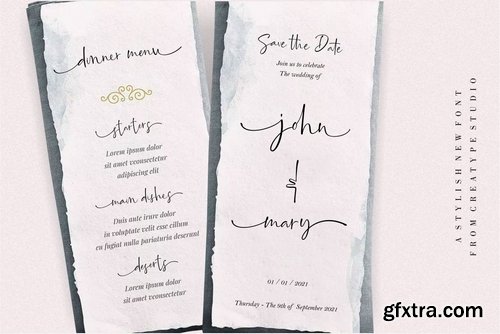 dinner menu
starters
Lorem ipsum dolor
sit amet vconsectetur
adipiscing elit
main dishes
Duis aute irure dolor
in voluptate velitaborum
eu fugiat nulla pariatura desarunt
deserts
Lorem ipsum dolor
sit amet wconsectetur
Save the Date
Join us to celebrate
The wedding of
john
&
mary
01 / 01 / 2021
Thursday - The 9th of September 2021
A STYLISH NEW FONT
FROM CREATYPE STUDIO
gfxtra.com